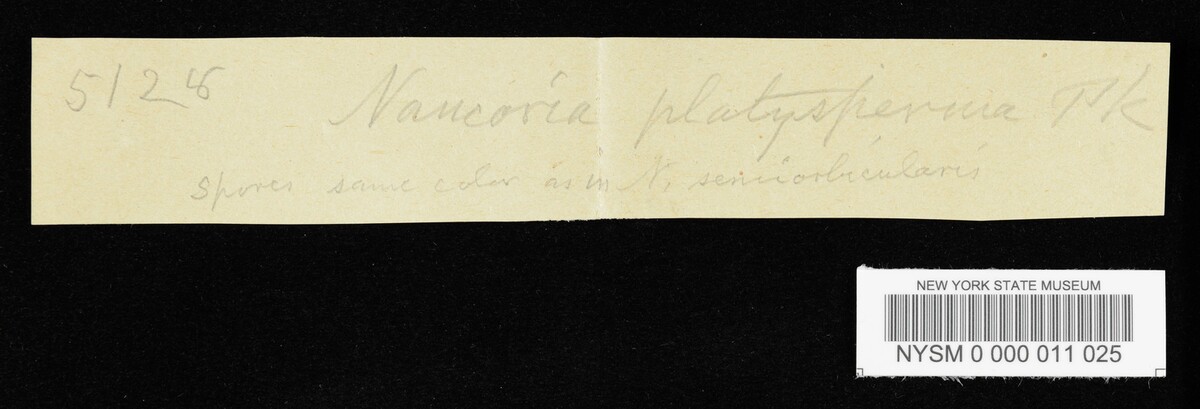 5128 Naucoria platysperma Pk
spores same color as in N. semiorbicularis
NEW YORK STATE MUSEUM
NYSM 0 000 011 025